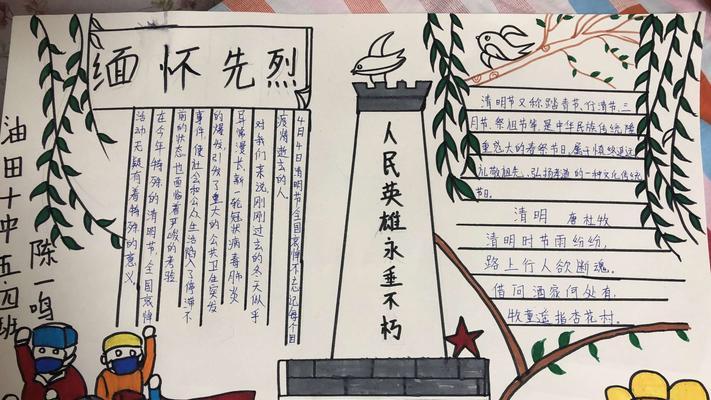 缅怀先烈
油田十中五.四班
陈一鸣
4月4日清明节,全国哀悼不忘记每个因
疫情逝去的人
对我们来说刚刚过去的冬天似乎
异常漫长,新一轮冠状病毒肺炎
的爆发,引发了重大的公共卫生突发
事件,使社会和公众生活陷入了停滞不
前的状态也面临着严峻的考验
在今年特殊的清明节,全国哀悼
活动无疑有着特殊的意义。
人民英雄永垂不朽
清明节又称踏青节、行清节、三
月节、祭祖节等,是中华民族传统隆
重盛大的春祭节日,属于慎终追远、
礼敬祖先、弘扬孝道的一种文化传统
节日。
清明 唐杜牧
清明时节雨纷纷,
路上行人欲断魂。
借问酒家何处有,
牧童遥指杏花村。